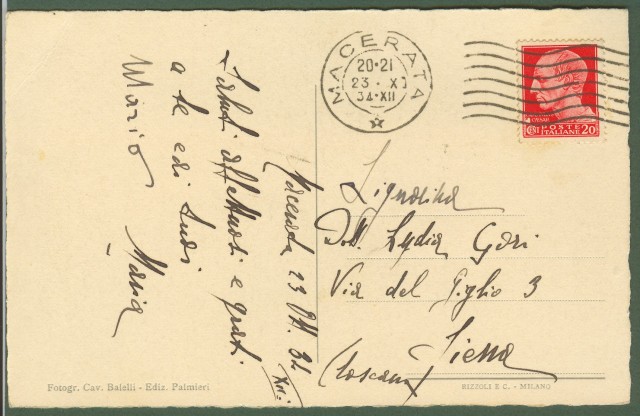 Macerata 23 Ott. 34
XII.
Saluti affettuosi e grati
a te e ai tuoi
Maria
Mario
MACERATA
20·21
23·X
34·XII
CESARE
POSTE
ITALIANE 20
CENT
Signorina
Dott. Lydia Gori
Via del Giglio 3
Siena
(Toscana)
Fotogr. Cav. Balelli - Ediz. Palmieri
RIZZOLI E C. - MILANO